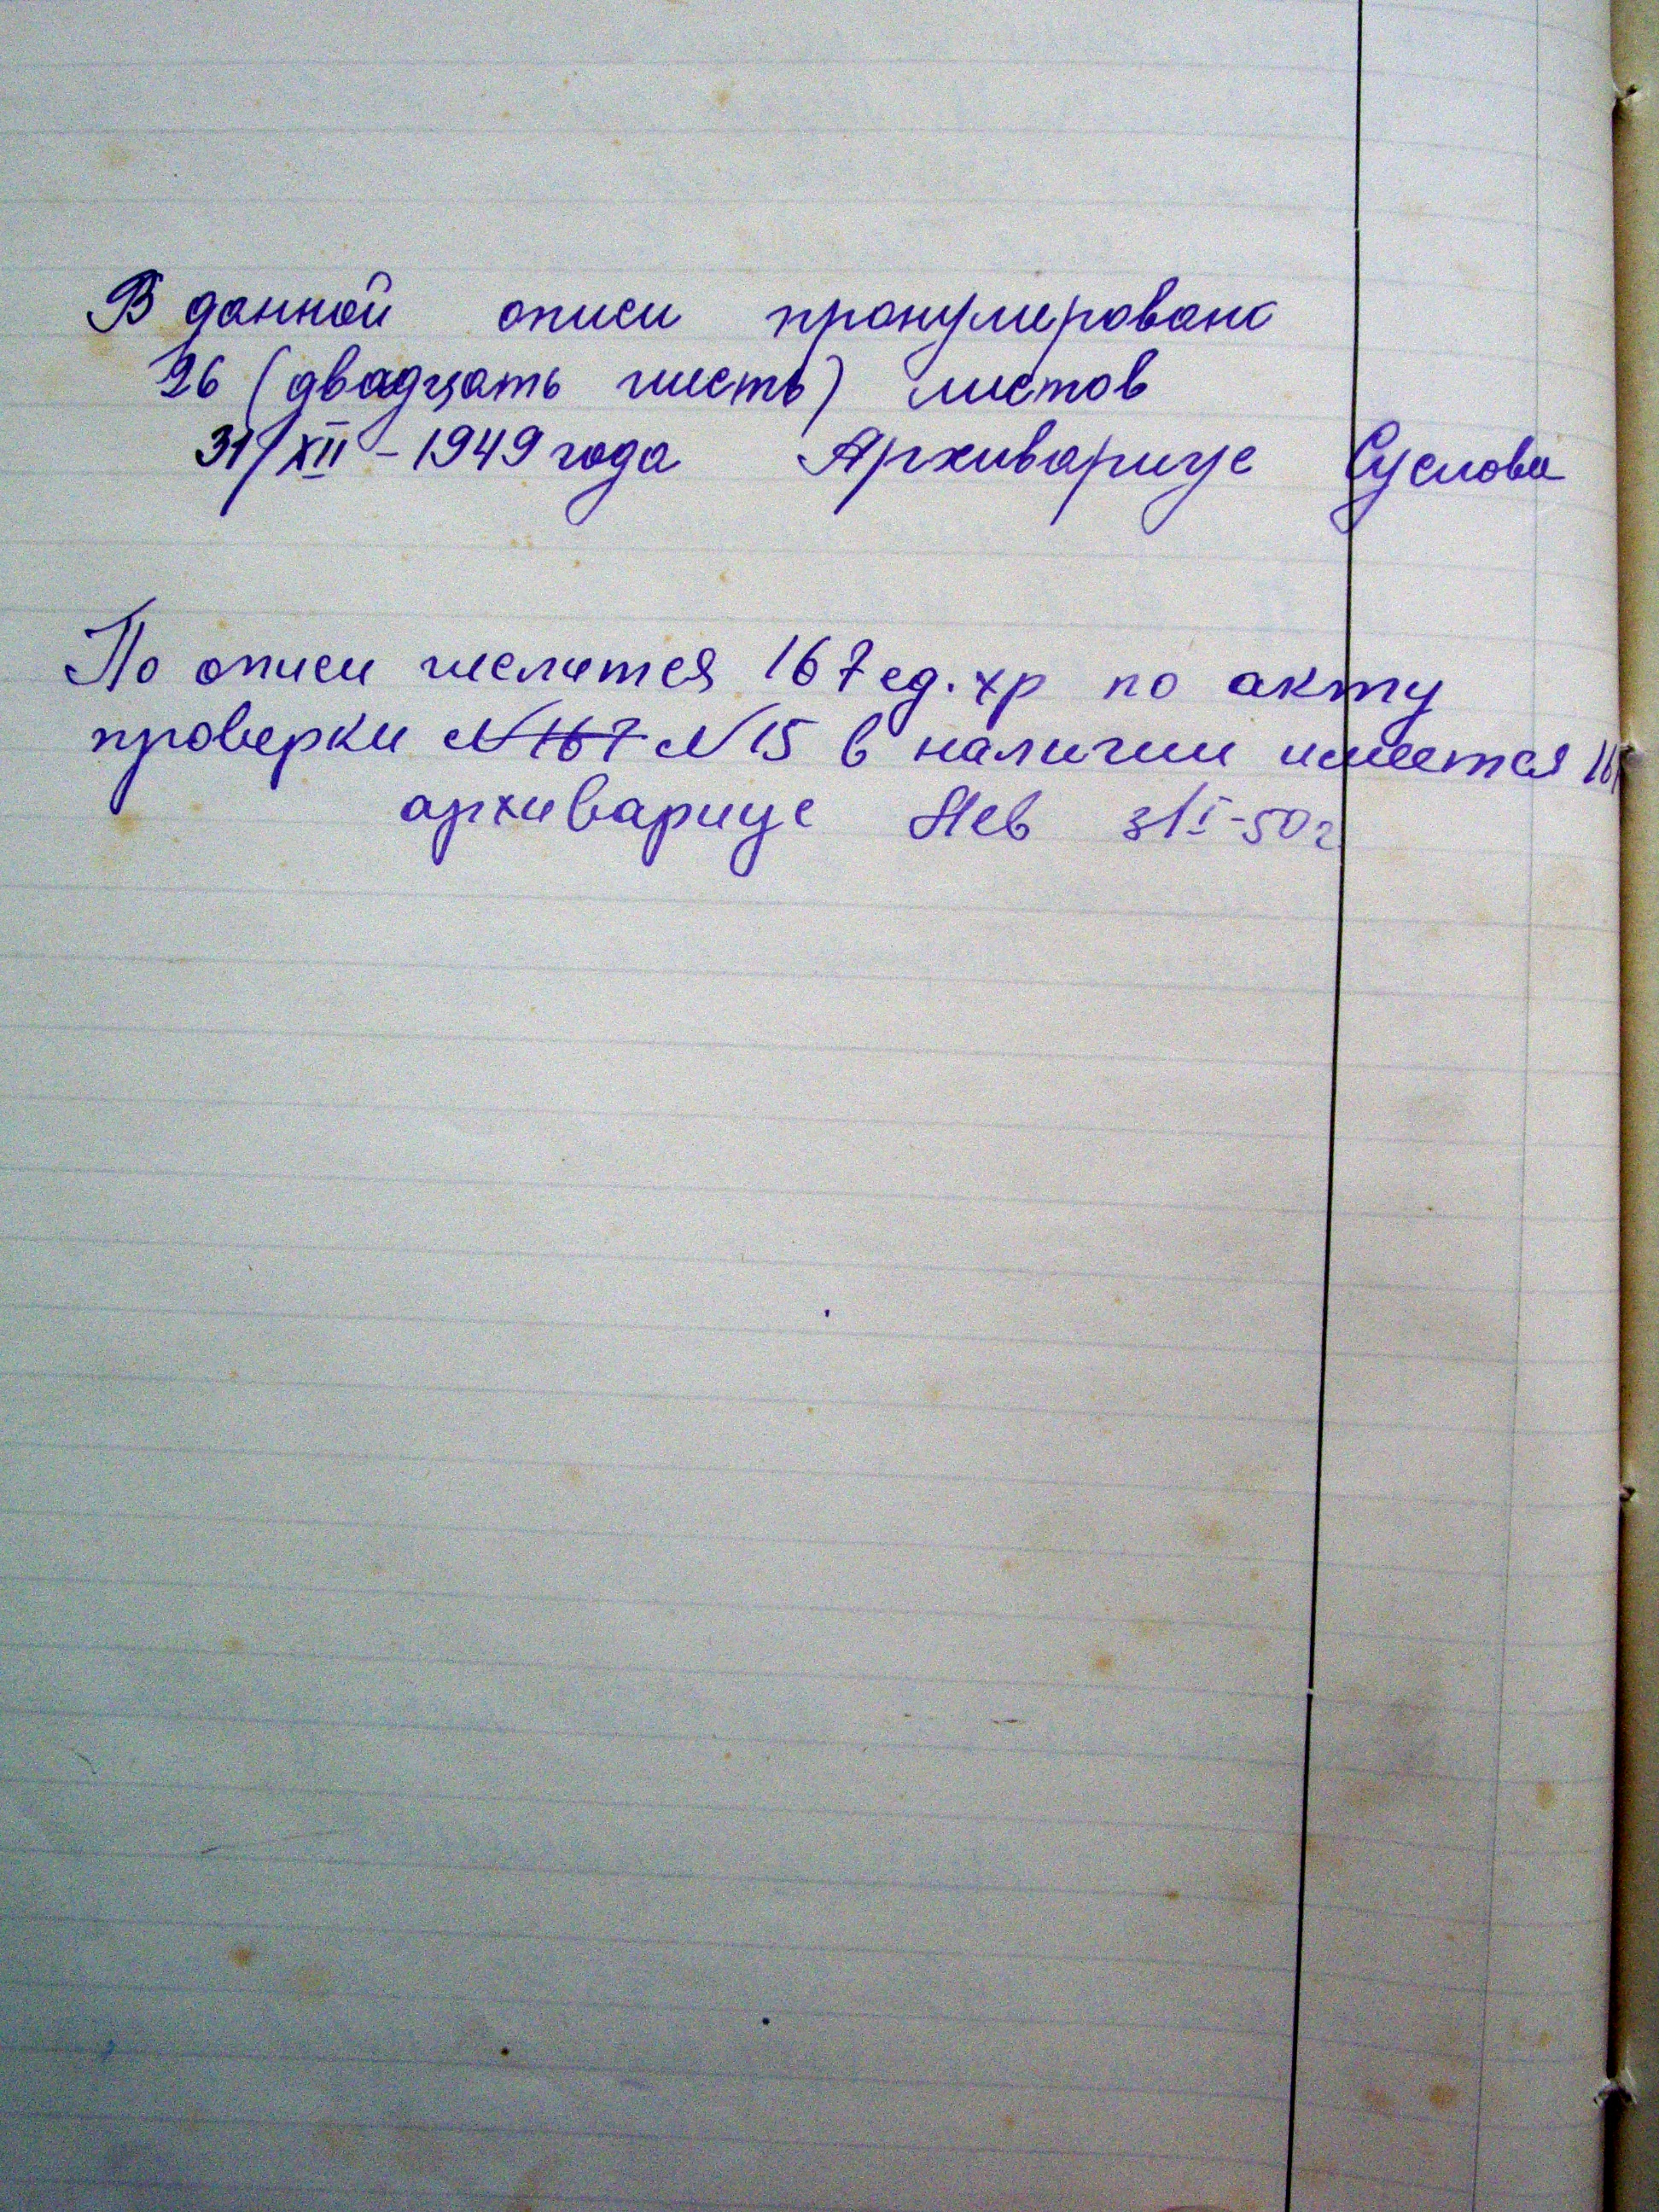 В данной описи пронумеровано
26 (двадцать шесть) листов
31/XII-1949 года Архивариус Суслова
По описи числится 167 ед. хр по акту
проверки №167 №15 в наличии имеется
архивариус 31/I-50г